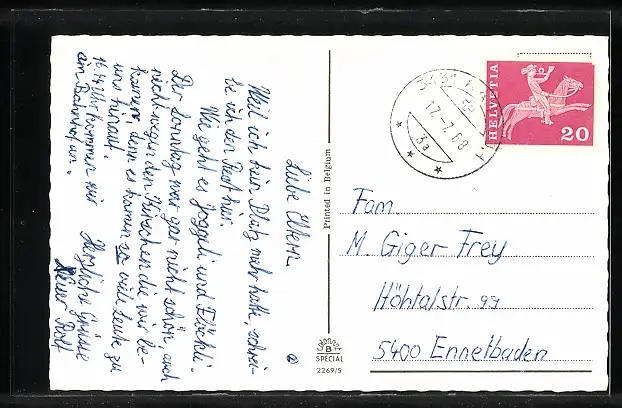 Liebe Eltern
Weil ich kein Platz mehr hatte, schrei-
be ich den Rest hier.
Wie geht es Joggeli und Flöckli.
Der Sonntag war gar nicht schön, auch
nicht wegen den Kirschen die wir be-
kamen denn es kamen so viele Leute zu
uns hinauf.
Uhr kommen wir
am Bahnhof an.
Herzliche Grüsse
Euer Rolf
Printed in Belgium
SPECIAL
2269/S
17.-7.68
3a
HELVETIA
20
Fam.
M. Giger Frey
Höhtalstr. 99
5400 Ennetbaden